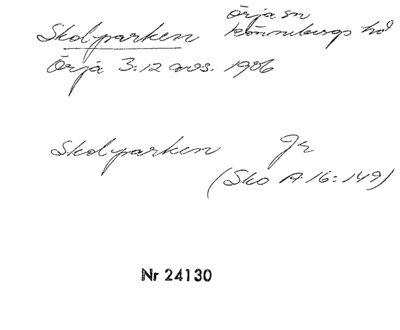 Skolparken Örja sn
Rönnebergs hd
Örja 3:12 avs. 1986
Skolparken Jr
(Sko A 16:149)
Nr 24130